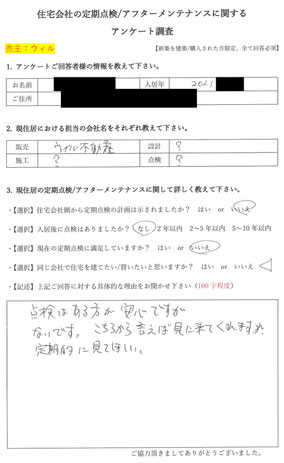 住宅会社の定期点検/アフターメンテナンスに関する
アンケート調査
売主：ウィル
【新築を建築/購入された方限定、全て回答必須】
1. アンケートご回答者様の情報を教えて下さい。
お名前 入居年 2021
ご住所
2. 現住居における担当の会社名をそれぞれ教えて下さい。
販売 ウィル不動産 設計 ?
施工 ? 点検 ?
3. 現住居の定期点検/アフターメンテナンスに関して詳しく教えて下さい。
・【選択】住宅会社側から定期点検の計画は示されましたか？ はい or いいえ
・【選択】入居後に点検はありましたか？ なし 2年以内 2～5年以内 5～10年以内
・【選択】現在の定期点検に満足していますか？ はい or いいえ
・【選択】同じ会社で住宅を建てたい/買いたいと思いますか？ はい or いいえ △
・【記述】上記ご回答に対する具体的な理由をお聞かせ下さい（100字程度）
点検はある方が安心ですが
ないです。こちらから言えば見に来てくれますが、
定期的に見てほしい。
ご協力頂きましてありがとうございました。